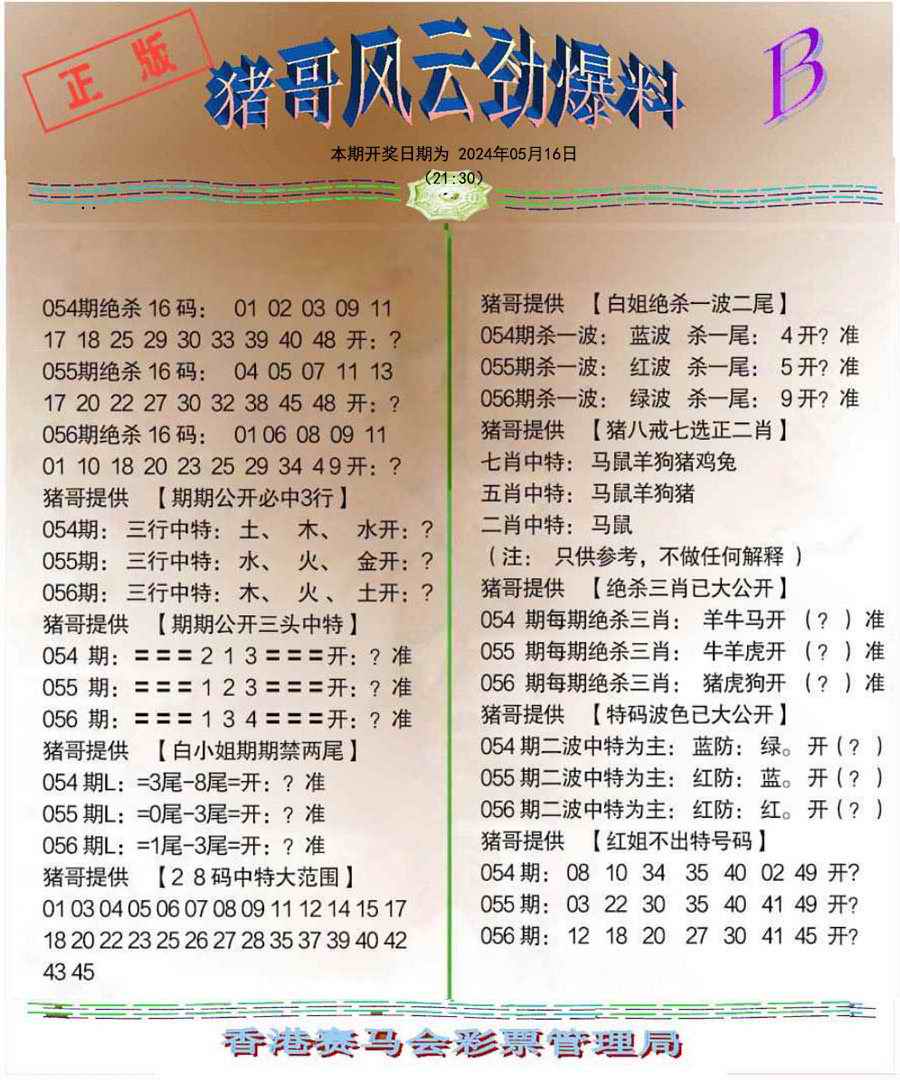 正版
猪哥风云劲爆料
B
本期开奖日期为 2024年05月16日
(21:30)
054期绝杀16码： 01 02 03 09 11
17 18 25 29 30 33 39 40 48 开：?
055期绝杀16码： 04 05 07 11 13
17 20 22 27 30 32 38 45 48 开：?
056期绝杀16码： 01 06 08 09 11
01 10 18 20 23 25 29 34 4 9 开：?
猪哥提供 【期期公开必中3行】
054期：三行中特：土、 木、 水开：?
055期：三行中特：水、 火、 金开：?
056期：三行中特：木、 火、 土开：?
猪哥提供 【期期公开三头中特】
054 期：===2 1 3===开：? 准
055 期：===1 2 3===开：? 准
056 期：===1 3 4===开：? 准
猪哥提供 【白小姐期期禁两尾】
054期L：=3尾-8尾=开：? 准
055期L：=0尾-3尾=开：? 准
056期L：=1尾-3尾=开：? 准
猪哥提供 【2 8码中特大范围】
01 03 04 05 06 07 08 09 11 12 14 15 17
18 20 22 23 25 26 27 28 35 37 39 40 42
43 45
猪哥提供 【白姐绝杀一波二尾】
054期杀一波： 蓝波 杀一尾： 4开? 准
055期杀一波： 红波 杀一尾： 5开? 准
056期杀一波： 绿波 杀一尾： 9开? 准
猪哥提供 【猪八戒七选正二肖】
七肖中特：马鼠羊狗猪鸡兔
五肖中特：马鼠羊狗猪
二肖中特：马鼠
（注： 只供参考，不做任何解释 ）
猪哥提供 【绝杀三肖已大公开】
054 期每期绝杀三肖： 羊牛马开 （? ）准
055 期每期绝杀三肖： 牛羊虎开 （? ）准
056 期每期绝杀三肖： 猪虎狗开 （? ）准
猪哥提供 【特码波色已大公开】
054期二波中特为主：蓝防：绿。开（? ）
055期二波中特为主：红防：蓝。开（? ）
056期二波中特为主：红防：红。开（? ）
猪哥提供 【红姐不出特号码】
054期： 08 10 34 35 40 02 49 开?
055期： 03 22 30 35 40 41 49 开?
056期： 12 18 20 27 30 41 45 开?
香港赛马会彩票管理局